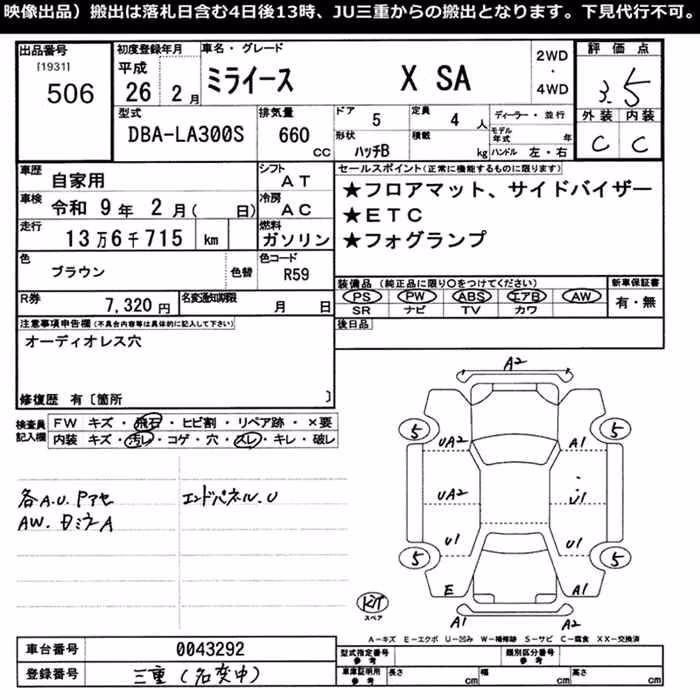 映像出品）搬出は落札日含む4日後13時、JU三重からの搬出となります。下見代行不可。
出品番号 [1931] 506
初度登録年月 平成 26 2月
車名・グレード ミライース X SA
2WD ・ 4WD
評価点 3.5
外装 C 内装 C
型式 DBA-LA300S
排気量 660 CC
ドア 5
定員 4 人
ディーラー・並行
形状 ハッチB
積載 kg
モデル年式 年
ハンドル 左・右
車歴 自家用
シフト AT
車検 令和 9年 2月( 日)
冷房 AC
走行 13万6千715 km
燃料 ガソリン
色 ブラウン
色替
色コード R59
R券 7,320円
名変通知期限 月 日
セールスポイント(正常に機能するものに限ります)
★フロアマット、サイドバイザー
★ETC
★フォグランプ
装備品 (純正品に限り○をつけてください)
PS PW ABS エアB AW
SR ナビ TV カワ
新車保証書 有・無
後日品
注意事項申告欄(不具合内容等は具体的に記入して下さい)
オーディオレス穴
修復歴 有〔箇所 〕
検査員記入欄
FW キズ・飛石・ヒビ割・リペア跡・×要
内装 キズ・汚レ・コゲ・穴・スレ・キレ・破レ
各A.U.Pアセ
エンドパネル.U
A2
5 5
UA2 A1
UA2 U1
U1 U1
5 5
E A1
A1 A2
スペア
A−キズ E−エクボ U−凹み W−補修跡 S−サビ C−腐食 XX−交換済
車台番号 0043292
登録番号 三重(名変中)
型式指定番号 参考
類別区分番号 参考
車庫証明用 参考 長さ cm 幅 cm 高さ cm